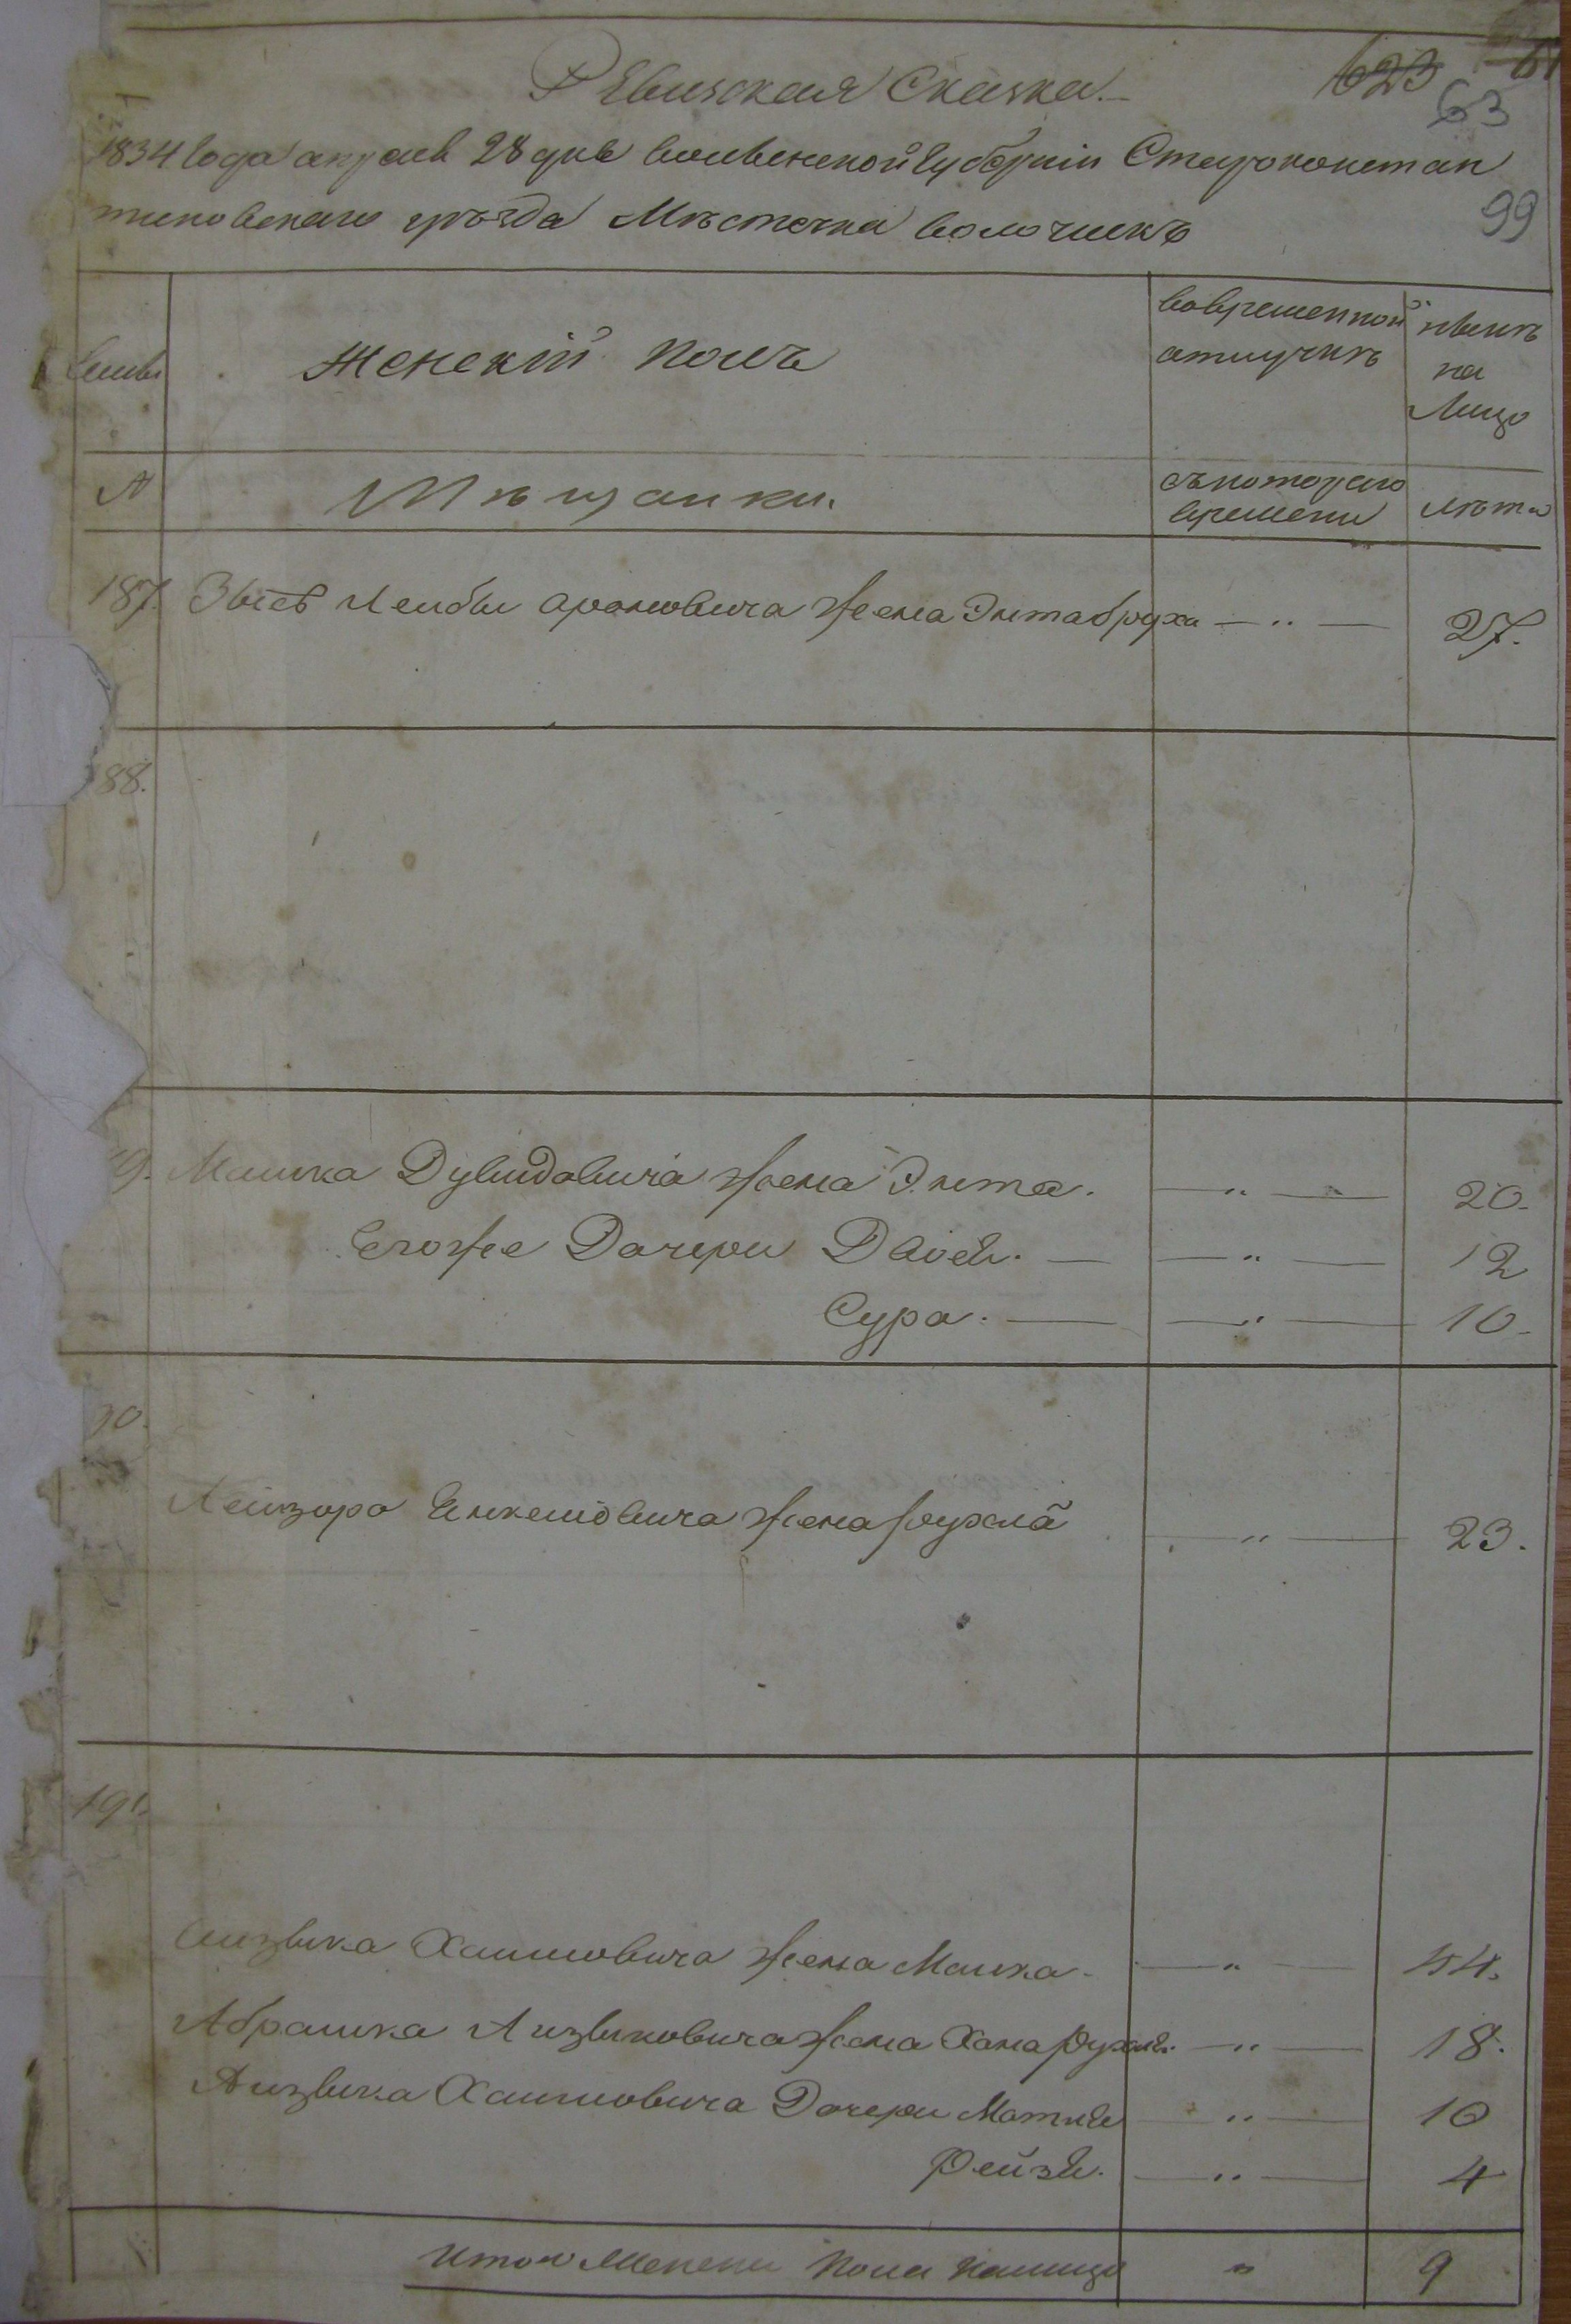 Ревизская Сказка.
623
61
63
1834 Года апреля 28 дня волынской Губернии Староконстан
тиновскаго уезда Мѣстечка волочискъ
99
Семьи
Женскій полъ
вовременной
отлучкѣ
нынѣ
на
Лицо
№
Мѣщанки.
съкотораго
времени
лѣта
187. Зысь Лейбы Ароновича Жена Энтабруха — " — 27.
88.
9. Мошка Дувидовича Жена Энта. — " — 20.
Егоже Дочери Двося. — " — 12
Сура. — " — 10.
90.
Лейзора Янкелiовича Жена рухля — " — 23.
191.
Айзыка Хаимовича Жена Малка. — " — 44.
Абрамка Айзыковича Жена Хана Рухля. — " — 18.
Айзыка Хаимовича Дочери Матля — " — 10
Рейзя. — " — 4
Итого Женска Пола Налицо " 9